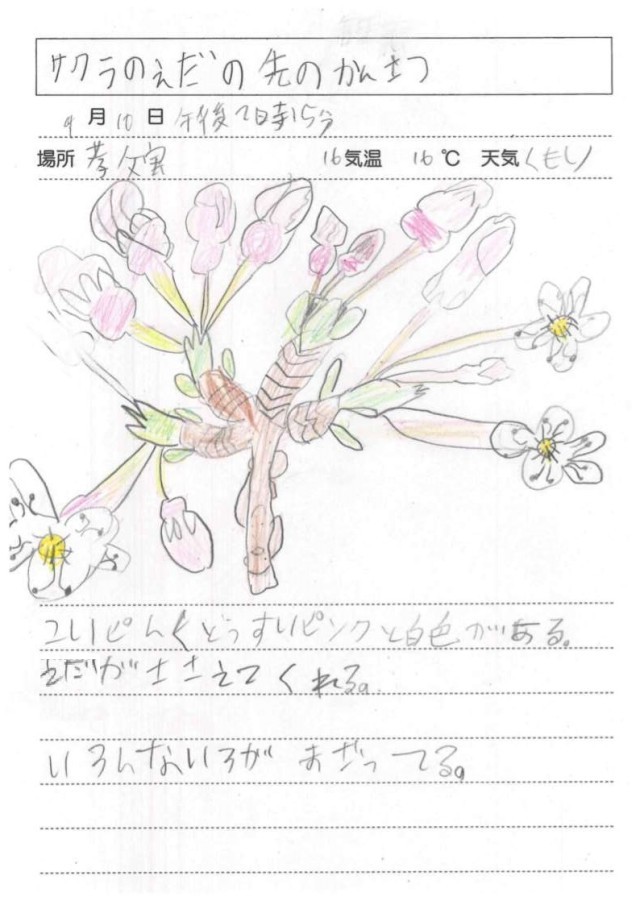 サクラのえだの先のかんさつ
月10日 午後2時15分
場所 16気温 16℃ 天気 くもり
こいピんくとうすいピンクと白色がある。
えだがささえてくれる。
いろんないろがまざってる。